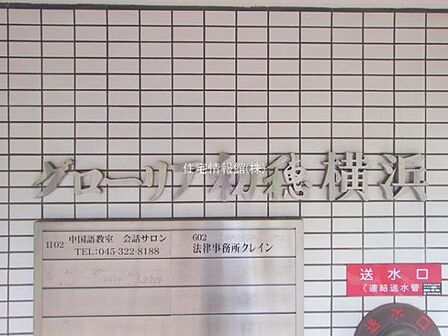 住宅情報館(株)
グローリア初穂横浜
1102 中国語教室 会話サロン
TEL:045-322-8188
602
法律事務所クレイン
送水口
(連結送水管
送水口